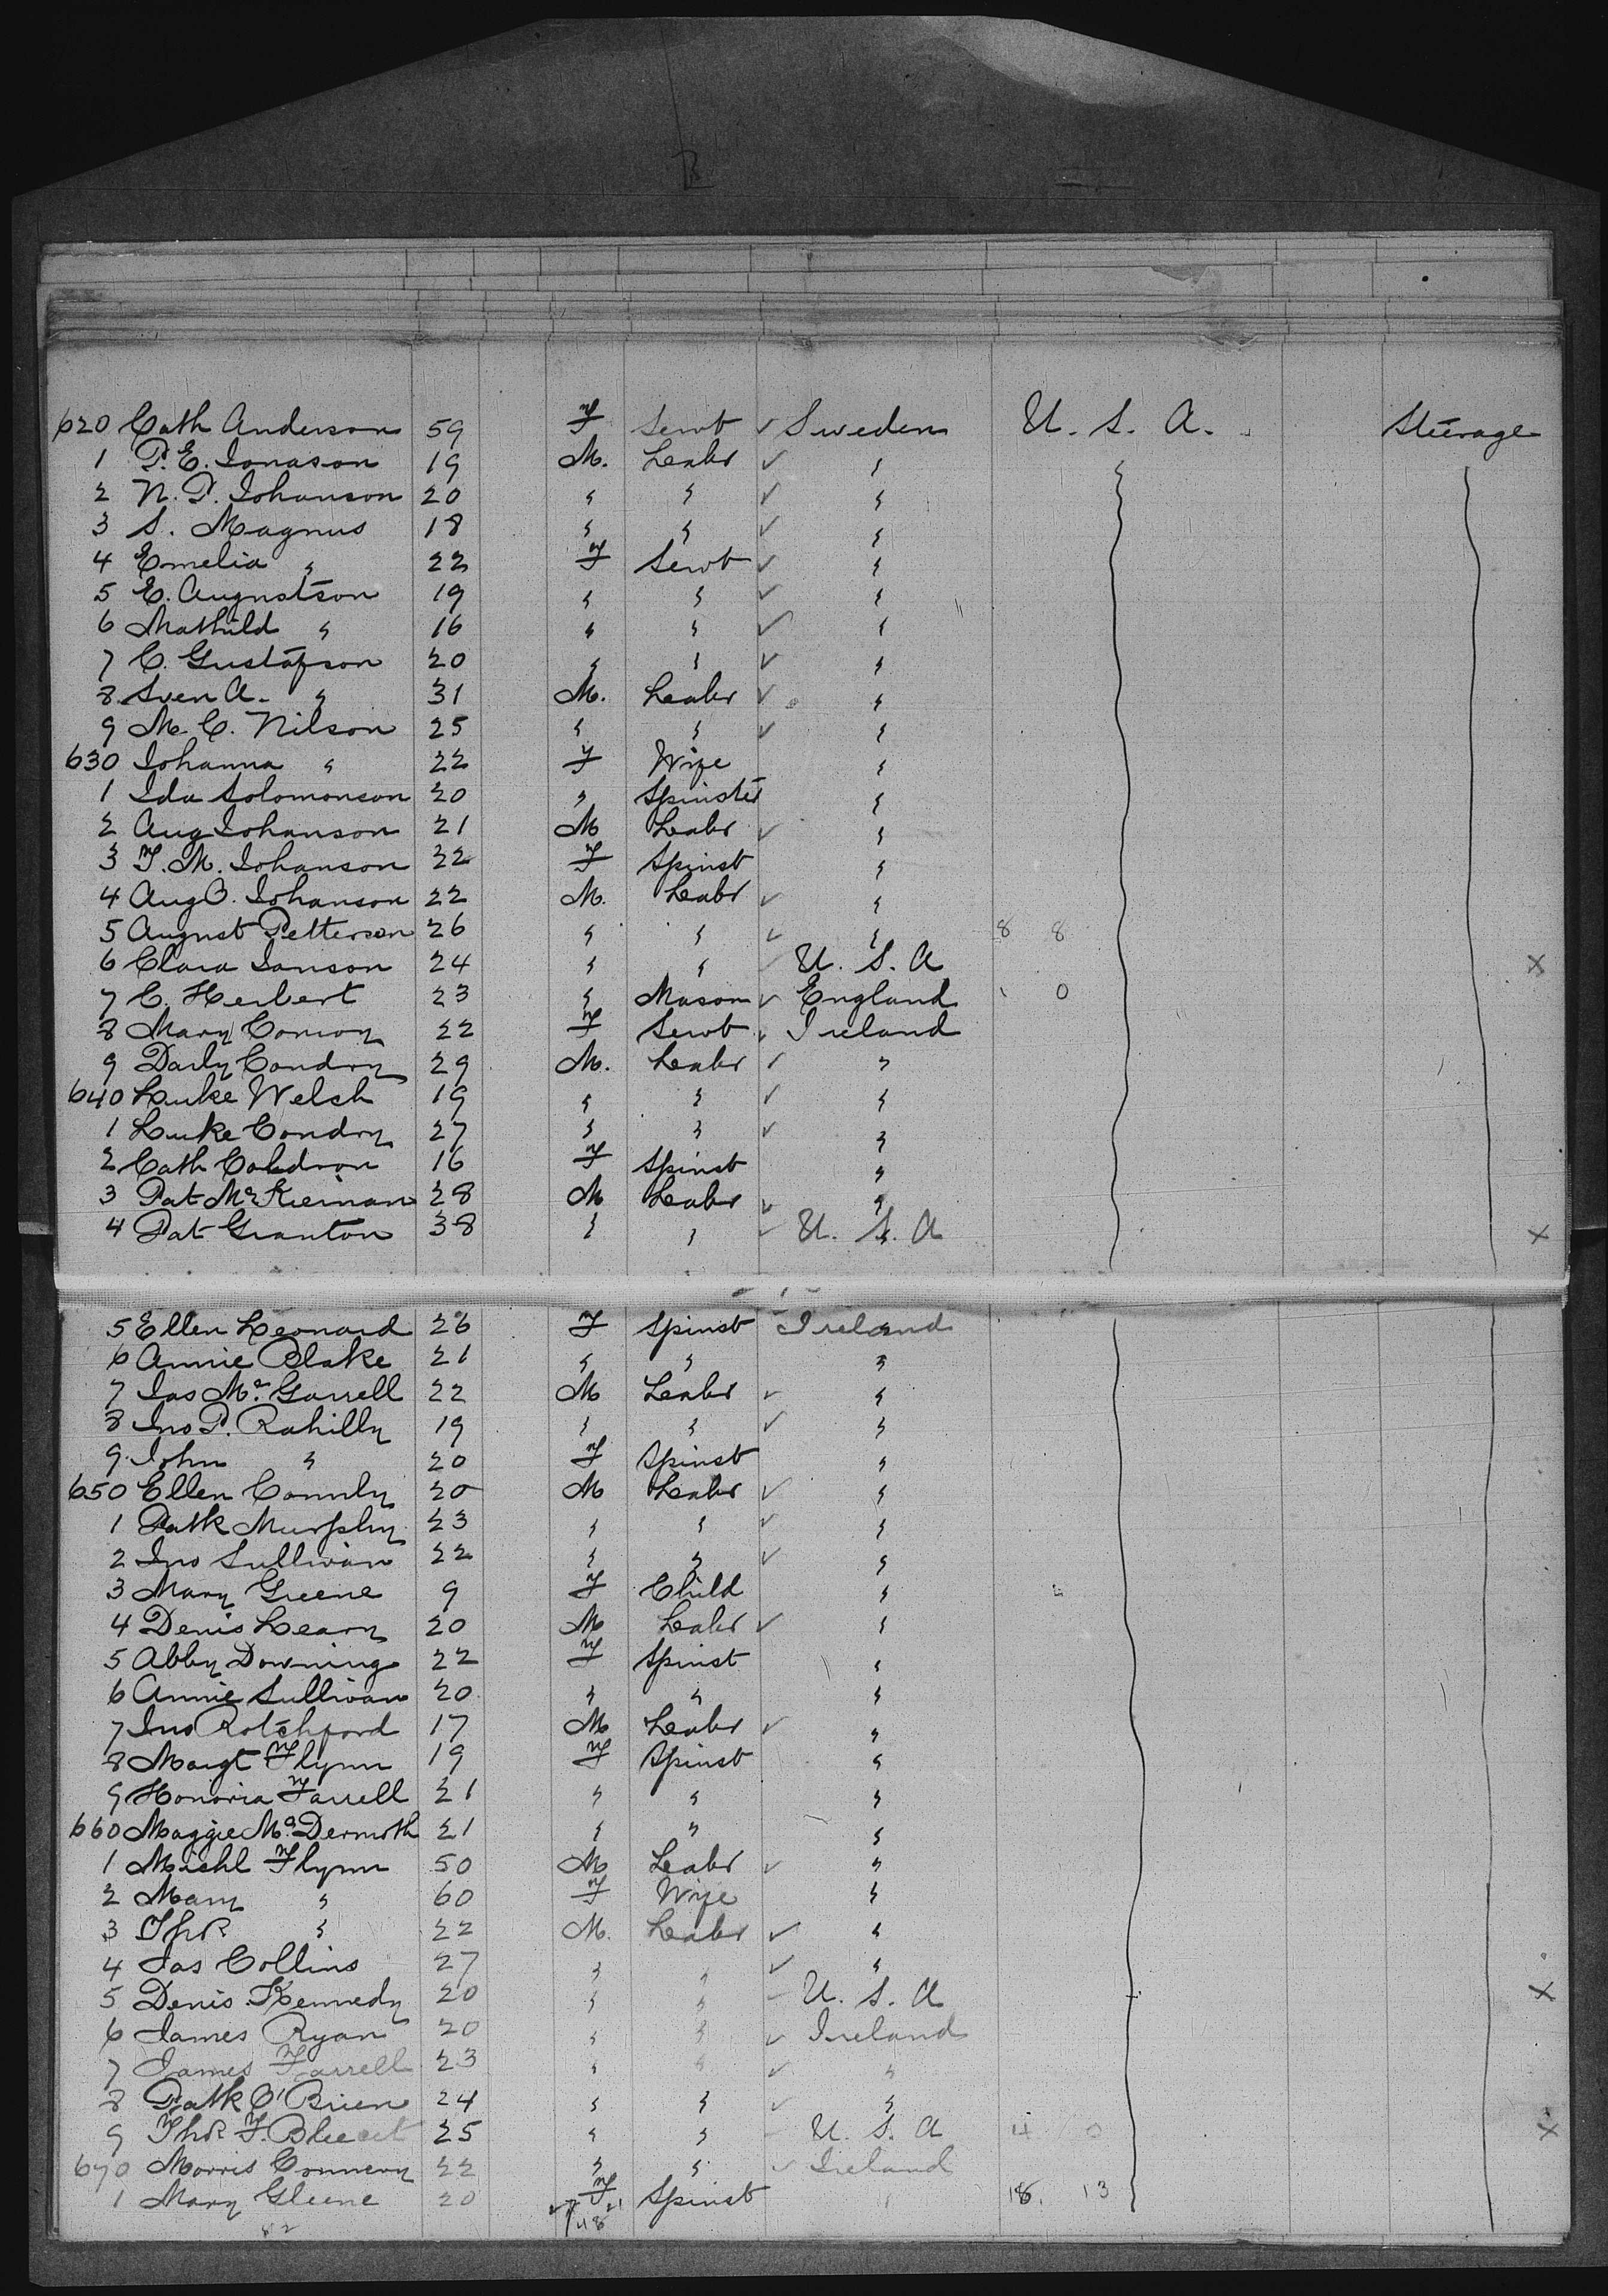 620 Cath Anderson 59 F Servt ✓ Sweden U. S. A. Steerage
1 P. E. Jonason 19 M. Labr ✓ "
2 N. P. Johanson 20 " " ✓ "
3 S. Magnus 18 " " ✓ "
4 Emelia " 22 F Servt ✓ "
5 E. Augustson 19 " " ✓ "
6 Mathild " 16 " " ✓ "
7 C. Gustafson 20 " " ✓ "
8 Sven A. " 31 M. Labr ✓ "
9 M. C. Nilson 25 " " ✓ "
630 Johanna " 22 F Wife "
1 Ida Solomonson 20 " Spinster "
2 Aug Johanson 21 M Labr ✓ "
3 F. M. Johanson 22 F Spinst "
4 Aug O. Johanson 22 M. Labr ✓ "
5 August Petterson 26 " " ✓ " 8 8
6 Clara Janson 24 " " U. S. A X
7 C. Herbert 23 " Mason ✓ England 0
8 Mary Conroy 22 F Servt ✓ Ireland
9 Darly Condry 29 M. Labr ✓ "
640 Luke Welsh 19 " " ✓ "
1 Luke Condry 27 " " ✓ "
2 Cath Coldron 16 F Spinst "
3 Pat McKiernan 28 M Labr ✓ "
4 Pat Granton 38 " " ✓ U. S. A X
5 Ellen Leonard 26 F Spinst Ireland
6 Annie Blake 21 " " "
7 Jas McGarrell 22 M Labr ✓ "
8 Jno P. Rahilly 19 " " ✓ "
9 John " 20 F Spinst "
650 Ellen Connly 20 M Labr ✓ "
1 Patk Murphy 23 " " ✓ "
2 Jno Sullivan 22 " " ✓ "
3 Mary Greene 9 F Child "
4 Denis Leary 20 M Labr ✓ "
5 Abby Downing 22 F Spinst "
6 Annie Sullivan 20 " " "
7 Jno Rotchford 17 M Labr ✓ "
8 Margt Flynn 19 F Spinst "
9 Honoria Farrell 21 " " "
660 Maggie McDermoth 21 " " "
1 Michl Flynn 50 M Labr ✓ "
2 Mary " 60 F Wife "
3 Thos " 22 M. Labr ✓ "
4 Jas Collins 27 " " ✓ "
5 Denis Kennedy 20 " " U. S. A X
6 James Ryan 20 " " ✓ Ireland
7 James Farrell 23 " " ✓ "
8 Patk O'Brien 24 " " ✓ "
9 Thos F. 25 " " U. S. A 4 0 X
670 Morris Connery 22 " " ✓ Ireland
1 Mary Gleene 20 F Spinst " 18. 13
82